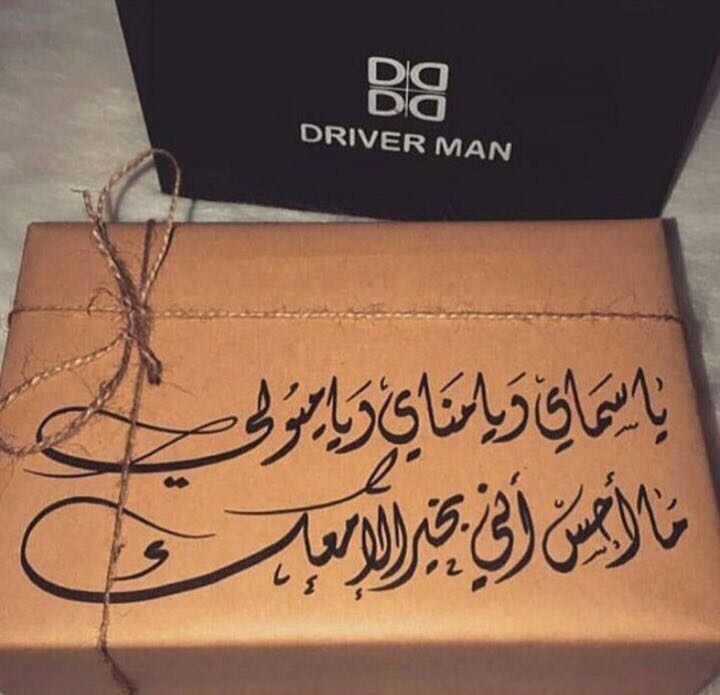 DD
DD
DRIVER MAN
يا سَماي وَيا مناي وَيا ميولي
ما أحس أني بخير إلا معك